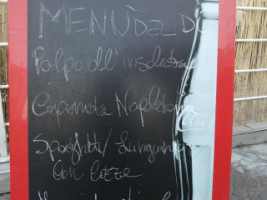 MENÙ DEL D
Polpo all'insalata
Caponata Napoletana
Spaghetti / Linguine
Con Cozze